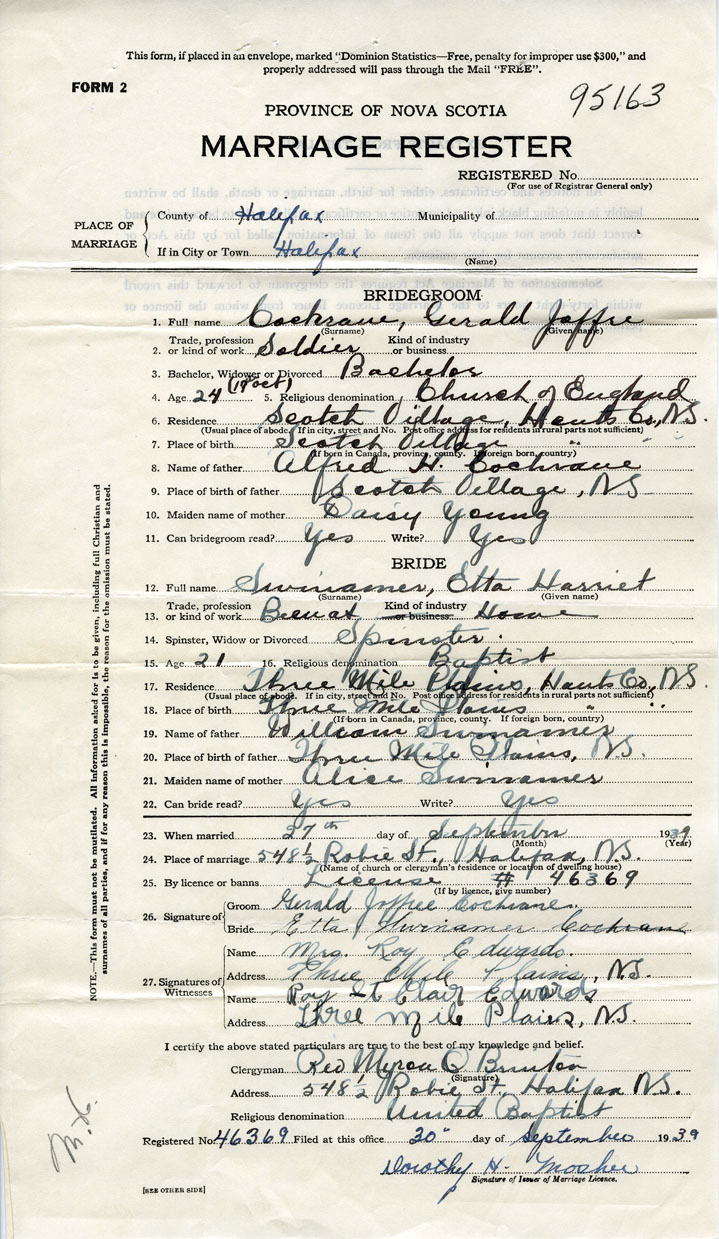 This form, if placed in an envelope, marked "Dominion Statistics—Free, penalty for improper use $300," and
properly addressed will pass through the Mail "FREE".
FORM 2
95163
PROVINCE OF NOVA SCOTIA
MARRIAGE REGISTER
REGISTERED No.
(For use of Registrar General only)
PLACE OF MARRIAGE
County of Halifax Municipality of
If in City or Town Halifax
(Name)
BRIDEGROOM
1. Full name Cochrane, Gerald Joffre
(Surname) (Given name)
2. Trade, profession or kind of work Soldier Kind of industry or business
3. Bachelor, Widower or Divorced Bachelor
4. Age 24 (19 Oct) 5. Religious denomination Church of England
6. Residence Scotch Village, Hants Co, N.S.
(Usual place of abode. If in city, street and No. Post office address for residents in rural parts not sufficient)
7. Place of birth Scotch Village " "
(If born in Canada, province, county. If foreign born, country)
8. Name of father Alfred H. Cochrane
9. Place of birth of father Scotch Village, NS
10. Maiden name of mother Daisy Young
11. Can bridegroom read? Yes Write? Yes
BRIDE
12. Full name Swinamer, Etta Harriet
(Surname) (Given name)
13. Trade, profession or kind of work Kind of industry or business Home
14. Spinster, Widow or Divorced Spinster
15. Age 21 16. Religious denomination Baptist
17. Residence Three Mile Plains, Hants Co, N.S.
(Usual place of abode. If in city, street and No. Post office address for residents in rural parts not sufficient)
18. Place of birth Three Mile Plains " "
(If born in Canada, province, county. If foreign born, country)
19. Name of father William Swinamer
20. Place of birth of father Three Mile Plains, NS.
21. Maiden name of mother Alice Swinamer
22. Can bride read? Yes Write? Yes
23. When married 27th day of September 1939
(Month) (Year)
24. Place of marriage 548½ Robie St., Halifax, N.S.
(Name of church or clergyman's residence or location of dwelling house)
25. By licence or banns License # 46369
(If by licence, give number)
26. Signature of
Groom Gerald Joffre Cochrane.
Bride Etta Swinamer Cochrane
27. Signatures of Witnesses
Name Mrs. Roy Edwards.
Address Three Mile Plains, N.S.
Name Roy St Clair Edwards
Address Three Mile Plains, N.S.
I certify the above stated particulars are true to the best of my knowledge and belief.
Clergyman Rev Myron O Brinton
(Signature)
Address 548½ Robie St. Halifax N.S.
Religious denomination United Baptist
Registered No. 46369 Filed at this office 30" day of September 1939
Dorothy H. Mosher
Signature of Issuer of Marriage Licence.
[SEE OTHER SIDE]
NOTE.—This form must not be mutilated. All information asked for is to be given, including full Christian and
surnames of all parties, and if for any reason this is impossible, the reason for the omission must be stated.